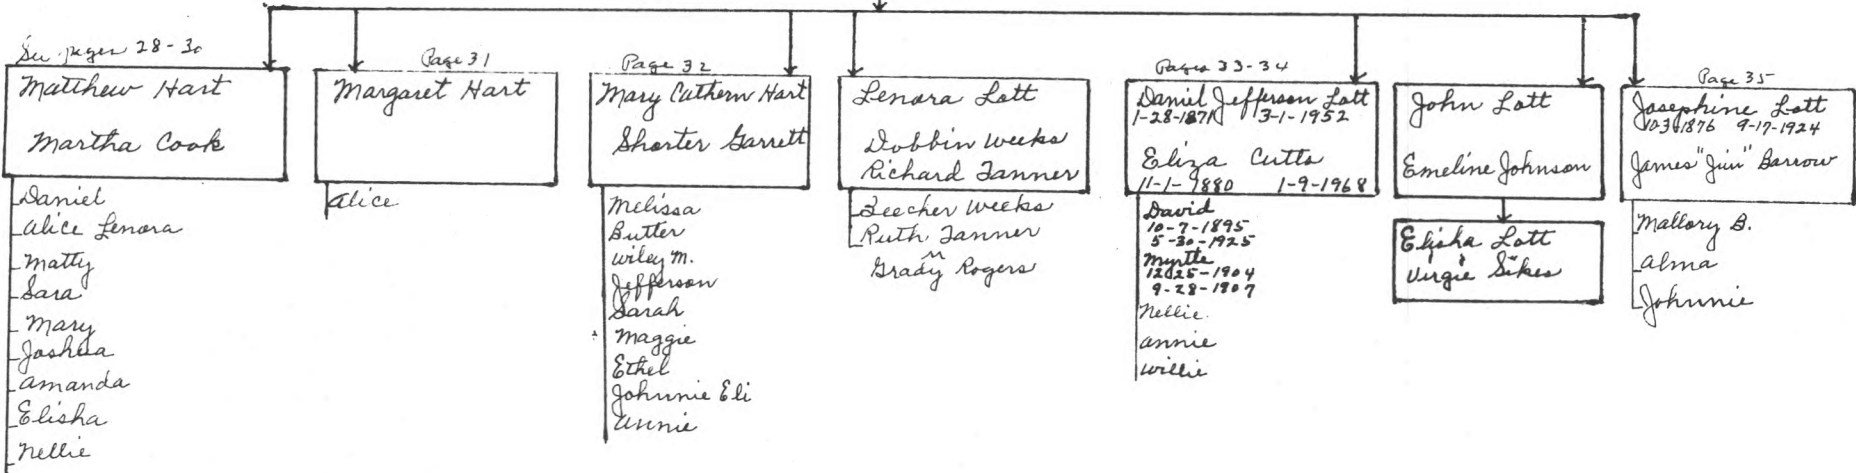 See pages 28-30
Matthew Hart
Martha Cook
Daniel
Alice Lenora
Matty
Sara
Mary
Joshua
Amanda
Elisha
Nellie
Page 31
Margaret Hart
Alice
Page 32
Mary Cathern Hart
Shorter Garrett
Melissa
Butter
Wiley M.
Jefferson
Sarah
Maggie
Ethel
Johnnie Eli
Annie
Lenora Lott
Dobbin Weeks
Richard Tanner
Beecher Weeks
Ruth Tanner
m
Grady Rogers
Pages 33-34
Daniel Jefferson Lott
1-28-1871 3-1-1952
Eliza Cutts
11-1-1880 1-9-1968
David
10-7-1895
5-30-1925
Myrtle
12-25-1904
9-28-1907
Nellie
Annie
Willie
John Lott
Emeline Johnson
Elisha Lott
Virgie Sikes
Page 35
Josephine Lott
1876 9-17-1924
James "Jim" Barrow
Mallory B.
Alma
Johnnie